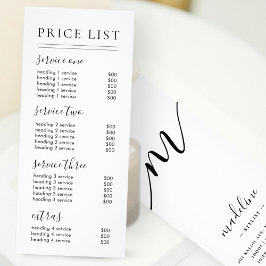 PRICE LIST
service one
heading 1 service $00
heading 1 service $00
heading 1 service $00
heading 1 service $00
service two
heading 2 service $00
heading 2 service $00
heading 2 service $00
heading 2 service $00
service three
heading 3 service $00
heading 3 service $00
heading 3 service $00
heading 3 service $00
extras
heading 4 service $00
heading 4 service $00
heading 4 service $00
m
madeline
STYLIST